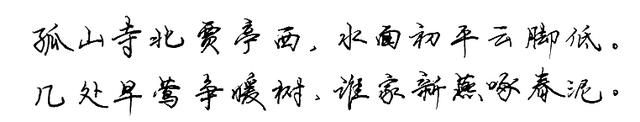 孤山寺北贾亭西，水面初平云脚低。
几处早莺争暖树、谁家新燕啄春泥。